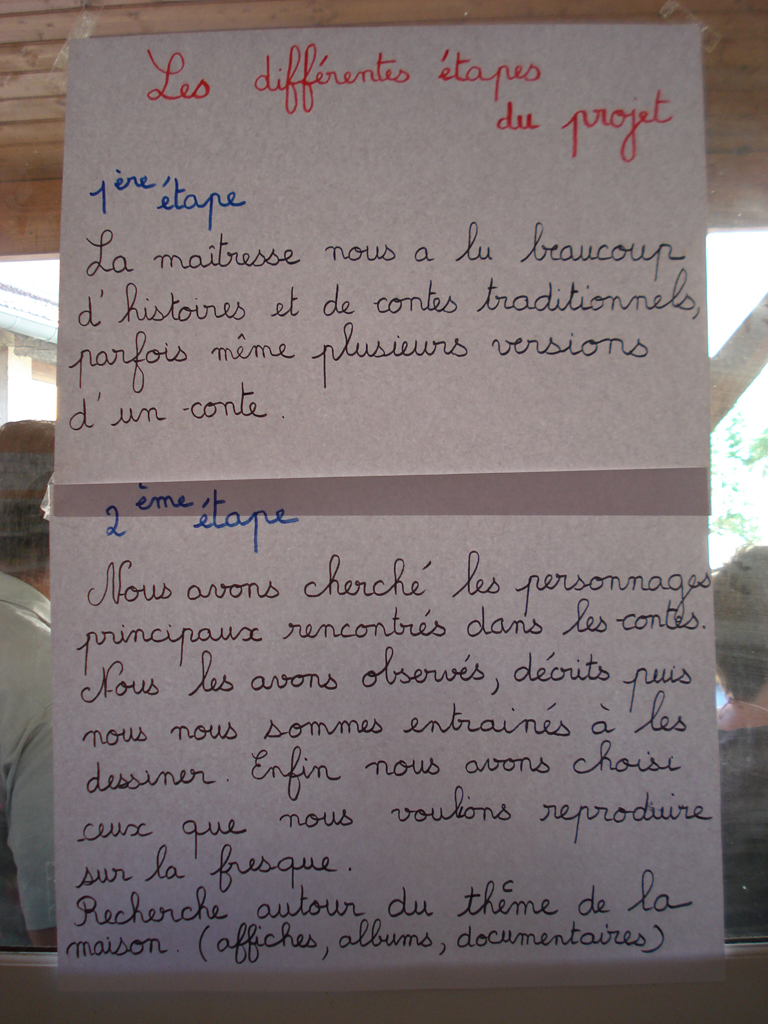 Les différentes étapes
du projet
1ère étape
La maîtresse nous a lu beaucoup
d'histoires et de contes traditionnels,
parfois même plusieurs versions
d'un conte.
2ème étape
Nous avons cherché les personnages
principaux rencontrés dans les contes.
Nous les avons observés, décrits puis
nous nous sommes entrainés à les
dessiner. Enfin nous avons choisi
ceux que nous voulions reproduire
sur la fresque.
Recherche autour du thême de la
maison. (affiches, albums, documentaires)